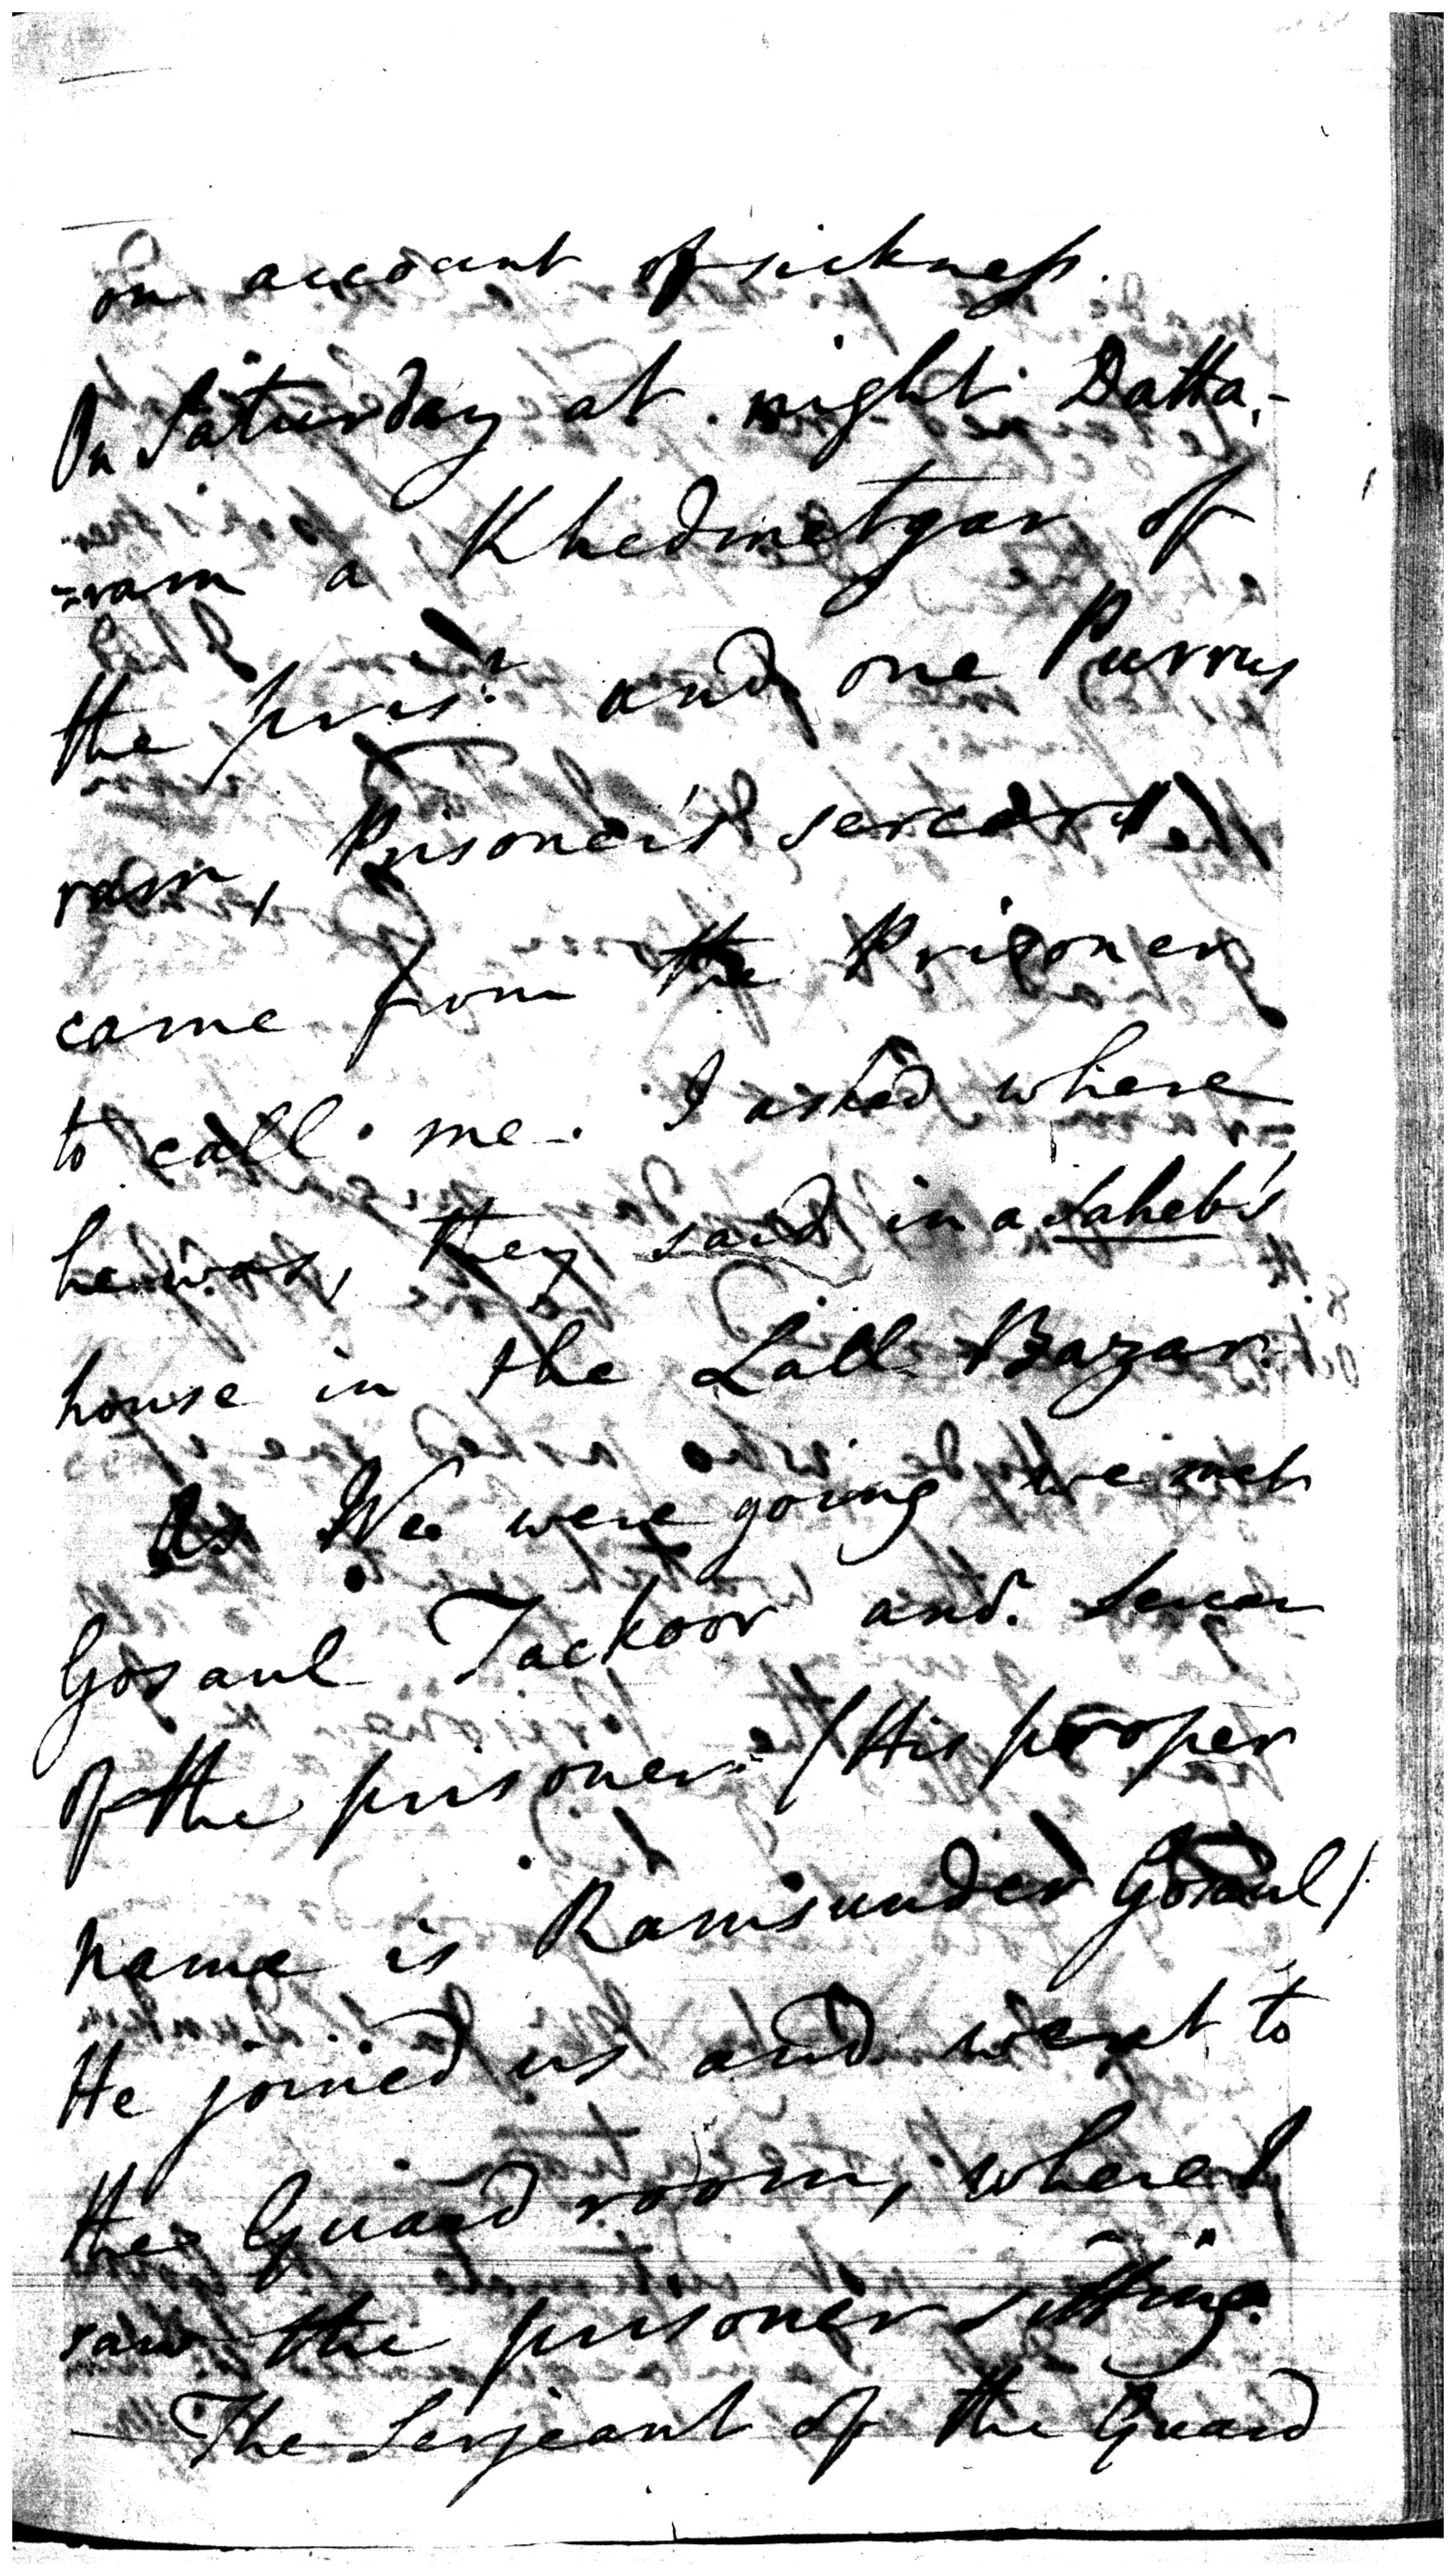 on account of sickness.
On Saturday at night Datta,-
=ram a Khedmetgar of
the pris.r and one Purrus
ram, Prisoner's servant
came from the Prisoner
to call me. I asked where
he was, they said in a Saheb's
house in the Lall Bazar.
As We were going we met
Gosaul Tackoor and
of the prisoner. (His proper
name is Ramsunder Gosaul)
He joined us and went to
the Guard room, where I
saw the prisoner sitting.
— The Serjeant of the Guard